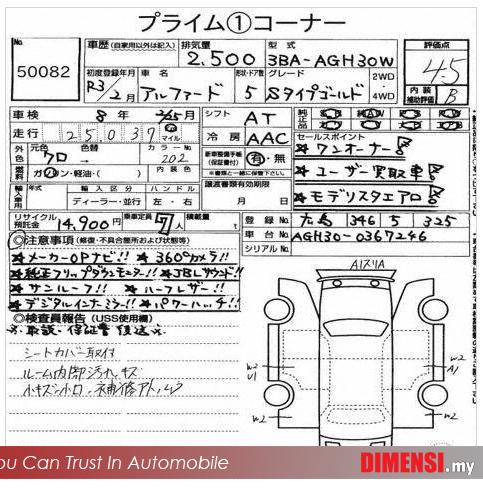 プライム①コーナー
No.
50082
車歴 (自家用以外は記入)
排気量
2,500
型式
3BA-AGH30W
評価点
4.5
初度登録年月
R3/2月
車名
アルファード
形状・ドア数
5
グレード
Sタイプゴールド
2WD・4WD
内装補助評価
B
車検
8年 2/15月
シフト
AT
純正品
走行
25,039
マイル
冷房
AAC
セールスポイント
★ワンオーナー
外色
元色
クロ
色替
カラーNo.
202
新車整備手帳(保証書付)
有・無
※書類と一緒に保管して下さい。
★ユーザー買取車
燃料
ガソリン・軽油・( )
★モデリスタエアロ
輸入車用
年式
輸入区分
ハンドル
ディーラー・並行
左・右
譲渡書類有効期限
月 日
リサイクル預託金
14,900円
乗車定員
7人
積載量
登録No.
346 5 325
車台No.
AGH30-0367246
シリアルNo.
◎注意事項 (修復・不具合箇所および状態等)
★メーカーOPナビ!! ★360°カメラ!!
★純正フリップダウンモニター!! ★JBLサウンド!!
★サンルーフ!! ★ハーフレザー!!
★デジタルインナーミラー!! ★パワーハッチ!!
◎検査員報告 (USS使用欄)
※取説・保証書後送
シートカバー取付
ルーム内御汚れ、キズ
小キズ
A1スリA
W2
U1
W2
A1
W2
W2
You Can Trust In Automobile
DIMENSI.my